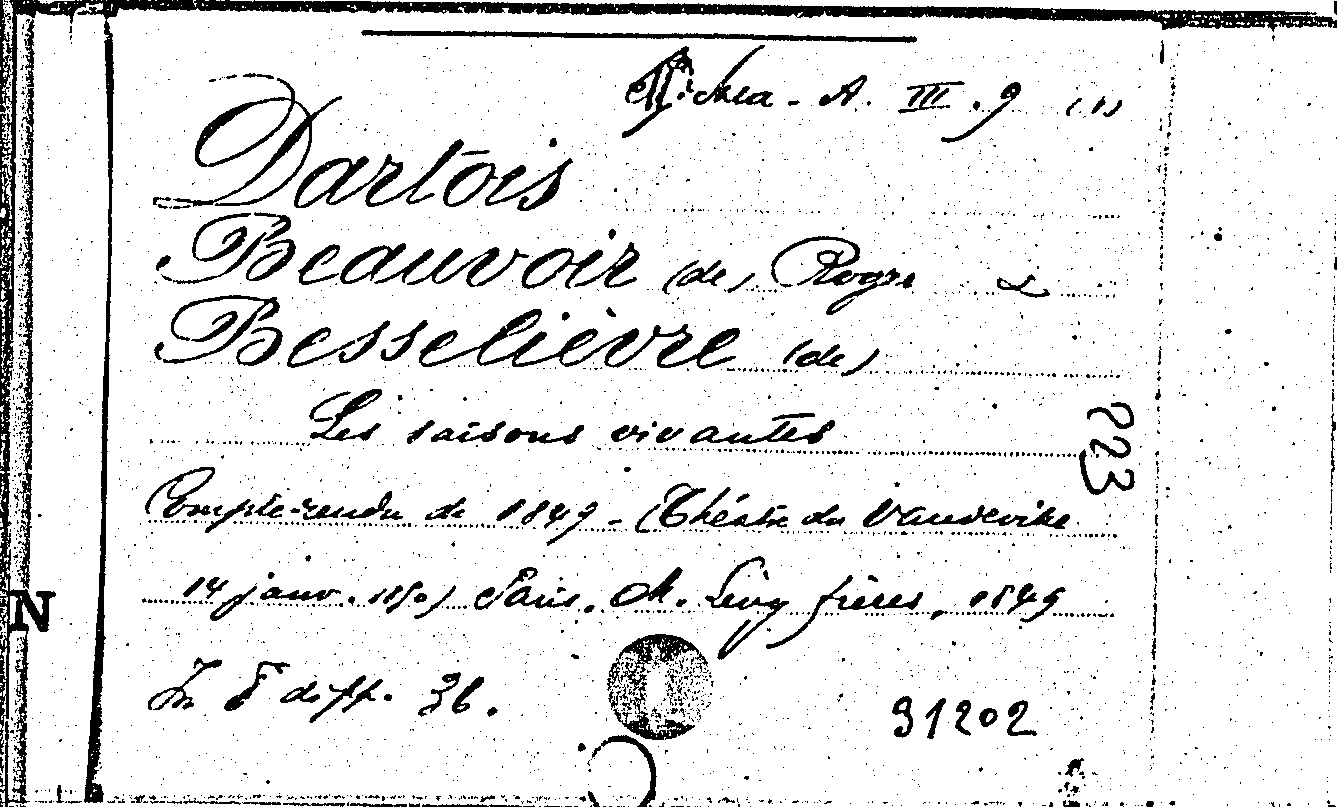 A. III. 9 (1)
Dartois
Beauvoir (de) Roger &
Besselièvre (de)
Les saisons vivantes
223
Compte-rendu de 1849 - (Théâtre du Vaudeville
14 janv. 1850) Paris. M. Lévy frères, 1849
In 8° diff. 36.
31202
N